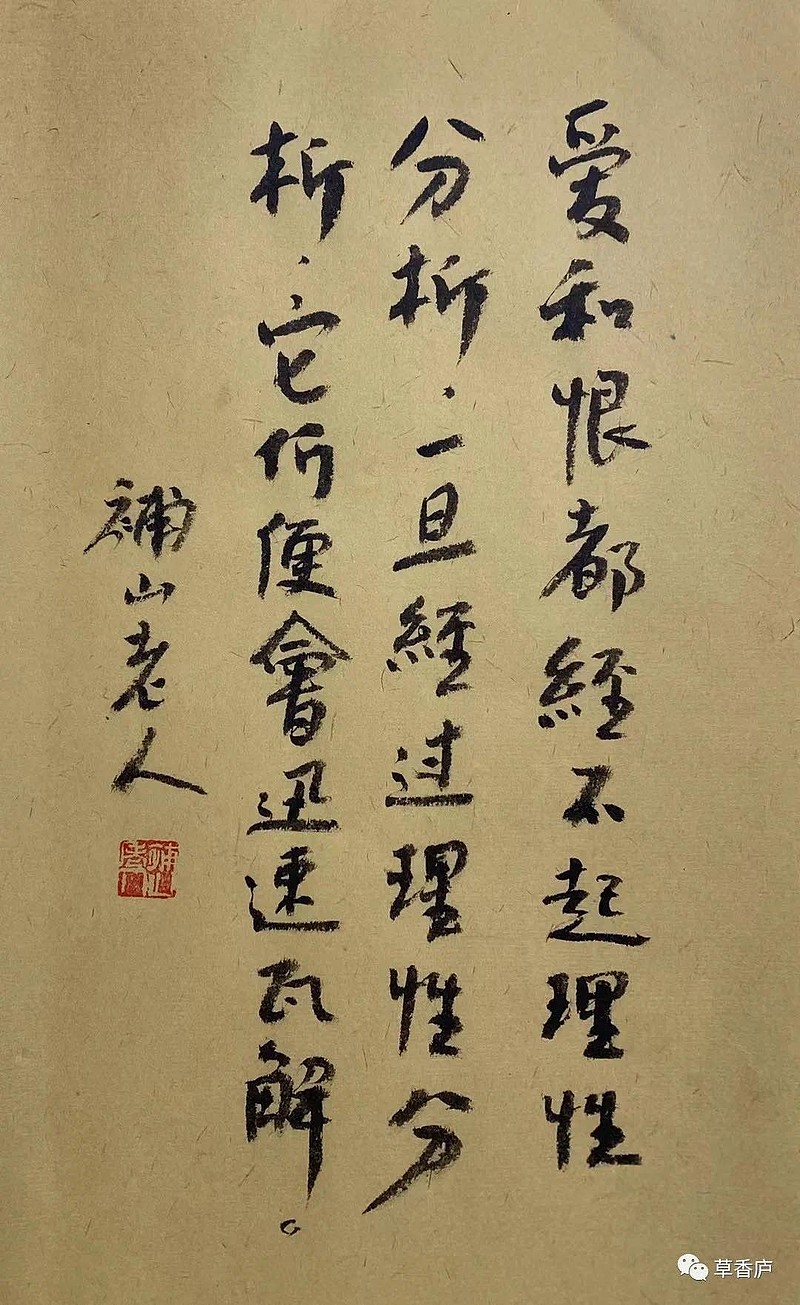 爱和恨都經不起理性
分析.一旦經过理性分
析.它们便會迅速瓦解。
補山老人
草香庐